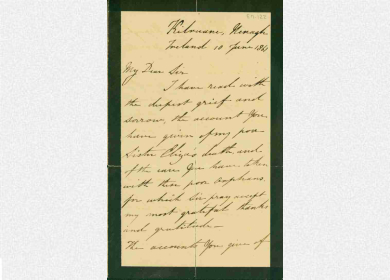 Kilruane, Nenagh
Ireland 10 June 186
My Dear Sir
I have read with
the deepest grief and
sorrow, the account You
have given of my poor
Sister Eliza's death and
of the care You have taken
with these poor orphans.
for which Sir pray accept
my most grateful thanks
and gratitude—
The accounts You give of